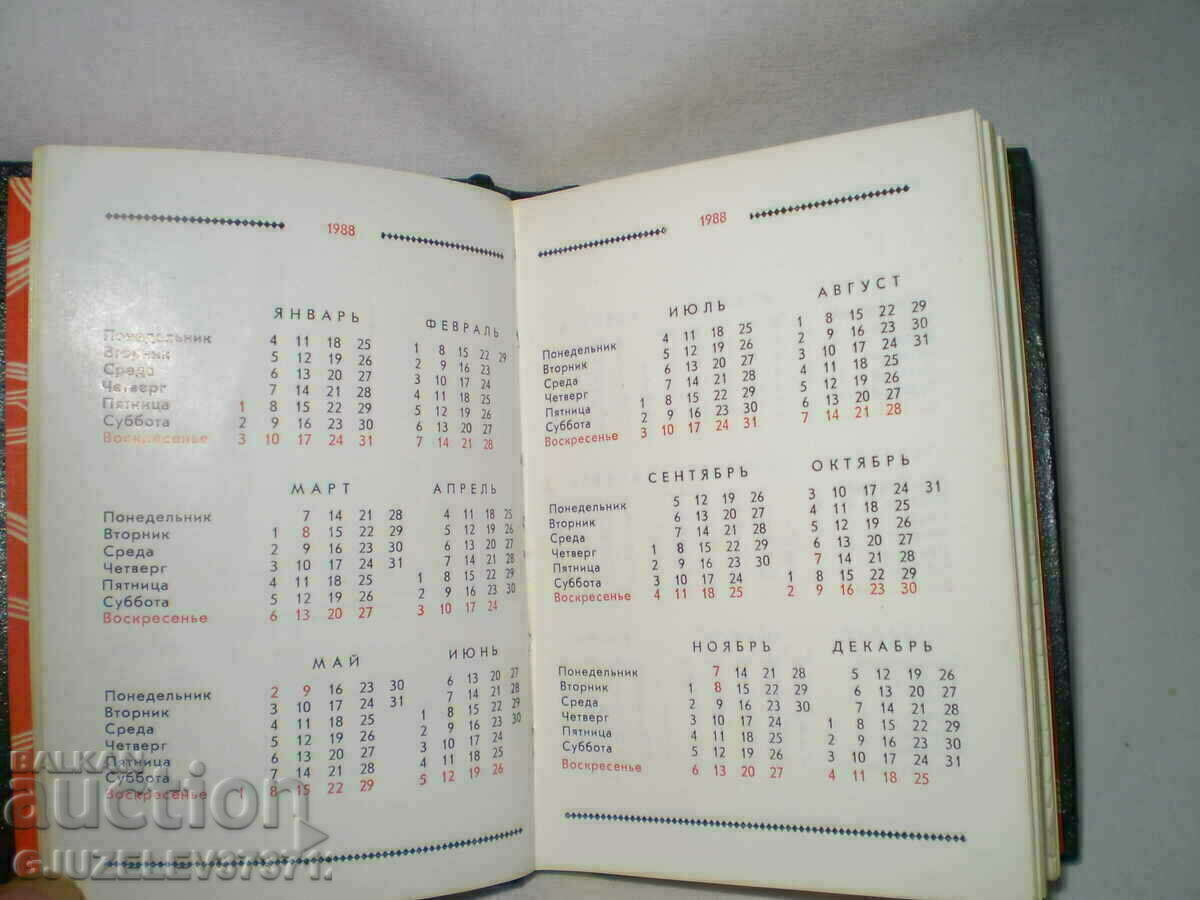 1988
ЯНВАРЬ ФЕВРАЛЬ
Понедельник 4 11 18 25 1 8 15 22 29
Вторник 5 12 19 26 2 9 16 23
Среда 6 13 20 27 3 10 17 24
Четверг 7 14 21 28 4 11 18 25
Пятница 1 8 15 22 29 5 12 19 26
Суббота 2 9 16 23 30 6 13 20 27
Воскресенье 3 10 17 24 31 7 14 21 28
МАРТ АПРЕЛЬ
Понедельник 7 14 21 28 4 11 18 25
Вторник 1 8 15 22 29 5 12 19 26
Среда 2 9 16 23 30 6 13 20 27
Четверг 3 10 17 24 31 7 14 21 28
Пятница 4 11 18 25 1 8 15 22 29
Суббота 5 12 19 26 2 9 16 23 30
Воскресенье 6 13 20 27 3 10 17 24
МАЙ ИЮНЬ
Понедельник 2 9 16 23 30 6 13 20 27
Вторник 3 10 17 24 31 7 14 21 28
Среда 4 11 18 25 1 8 15 22 29
Четверг 5 12 19 26 2 9 16 23 30
Пятница 6 13 20 27 3 10 17 24
Суббота 7 14 21 28 4 11 18 25
Воскресенье 1 8 15 22 29 5 12 19 26
1988
ИЮЛЬ АВГУСТ
Понедельник 4 11 18 25 1 8 15 22 29
Вторник 5 12 19 26 2 9 16 23 30
Среда 6 13 20 27 3 10 17 24 31
Четверг 7 14 21 28 4 11 18 25
Пятница 1 8 15 22 29 5 12 19 26
Суббота 2 9 16 23 30 6 13 20 27
Воскресенье 3 10 17 24 31 7 14 21 28
СЕНТЯБРЬ ОКТЯБРЬ
Понедельник 5 12 19 26 3 10 17 24 31
Вторник 6 13 20 27 4 11 18 25
Среда 7 14 21 28 5 12 19 26
Четверг 1 8 15 22 29 6 13 20 27
Пятница 2 9 16 23 30 7 14 21 28
Суббота 3 10 17 24 1 8 15 22 29
Воскресенье 4 11 18 25 2 9 16 23 30
НОЯБРЬ ДЕКАБРЬ
Понедельник 7 14 21 28 5 12 19 26
Вторник 1 8 15 22 29 6 13 20 27
Среда 2 9 16 23 30 7 14 21 28
Четверг 3 10 17 24 1 8 15 22 29
Пятница 4 11 18 25 2 9 16 23 30
Суббота 5 12 19 26 3 10 17 24 31
Воскресенье 6 13 20 27 4 11 18 25
BALKAN
auction
GJUZELEV37371.